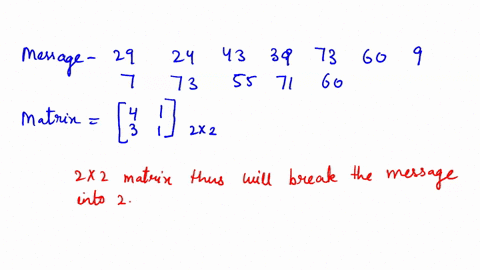 Message - 29 24 43 39 73 60 9
7 73 55 71 60
Matrix = [4 1
3 1] 2x2
2x2 matrix thus will break the message
into 2.